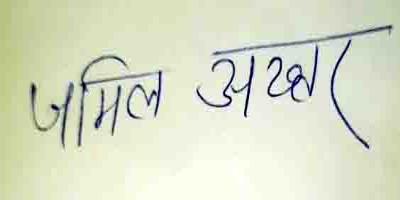 जमिल अख्तर